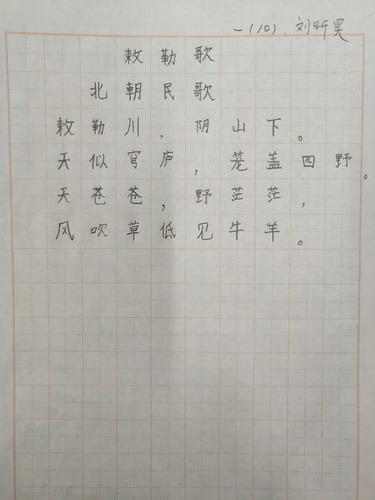 一(10).刘昕昊
敕勒歌
北朝民歌
敕勒川,阴山下。
天似穹庐,笼盖四野。
天苍苍,野茫茫,
风吹草低见牛羊。